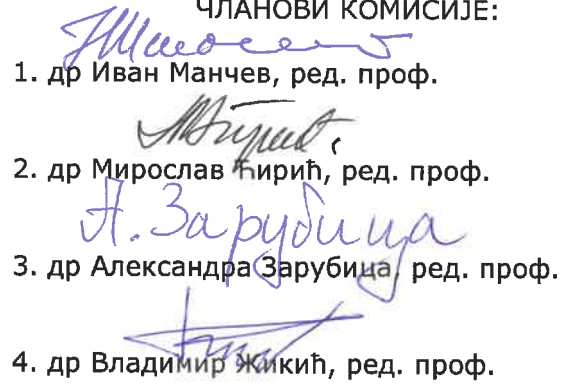 ЧЛАНОВИ КОМИСИЈЕ:
1. др Иван Манчев, ред. проф.
2. др Мирослав Ћирић, ред. проф.
А. Зарубица
3. др Александра Зарубица, ред. проф.
4. др Владимир Жикић, ред. проф.